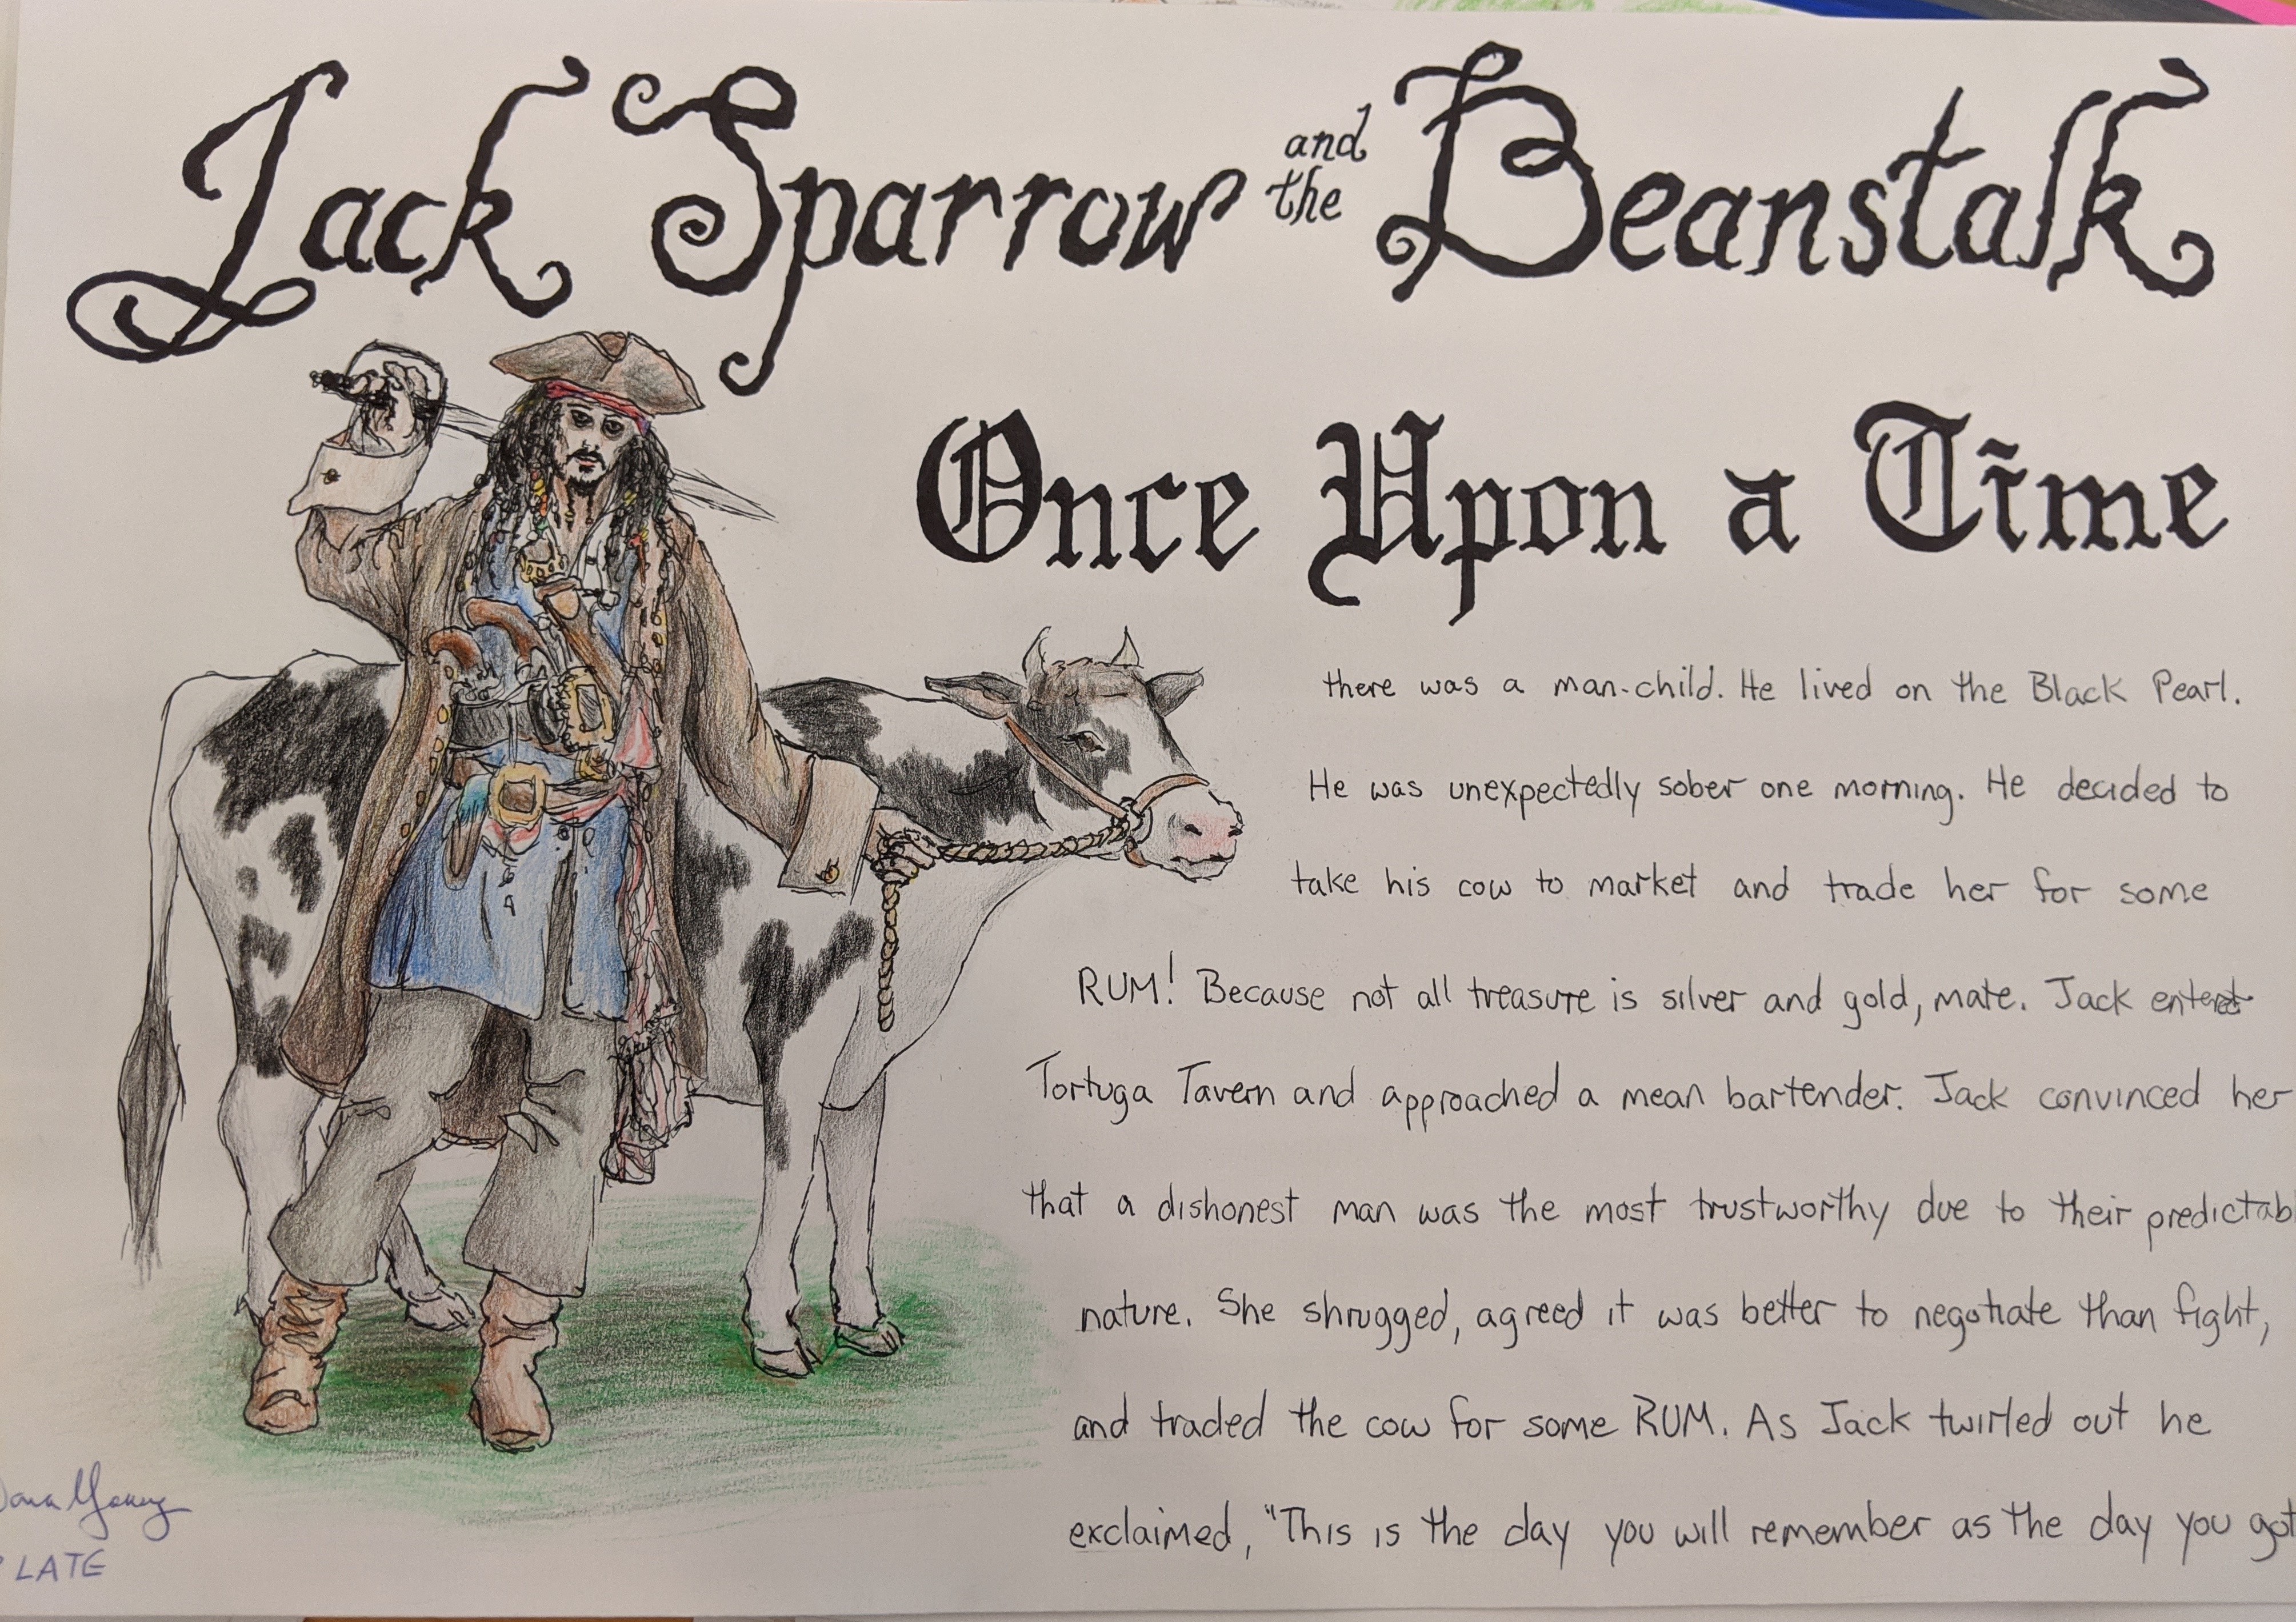 Jack Sparrow and the Beanstalk
Once Upon a Time
there was a man-child. He lived on the Black Pearl.
He was unexpectedly sober one morning. He decided to
take his cow to market and trade her for some
RUM! Because not all treasure is silver and gold, mate. Jack entered
Tortuga Tavern and approached a mean bartender. Jack convinced her
that a dishonest man was the most trustworthy due to their predictab
nature. She shrugged, agreed it was better to negotiate than fight,
and traded the cow for some RUM. As Jack twirled out he
exclaimed, "This is the day you will remember as the day you got
LATE